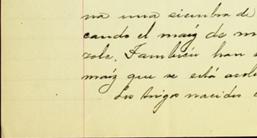 na una siembra de
cando el maíz de m
role. Tambien han s
maíz que se está
Los trigos nacidos